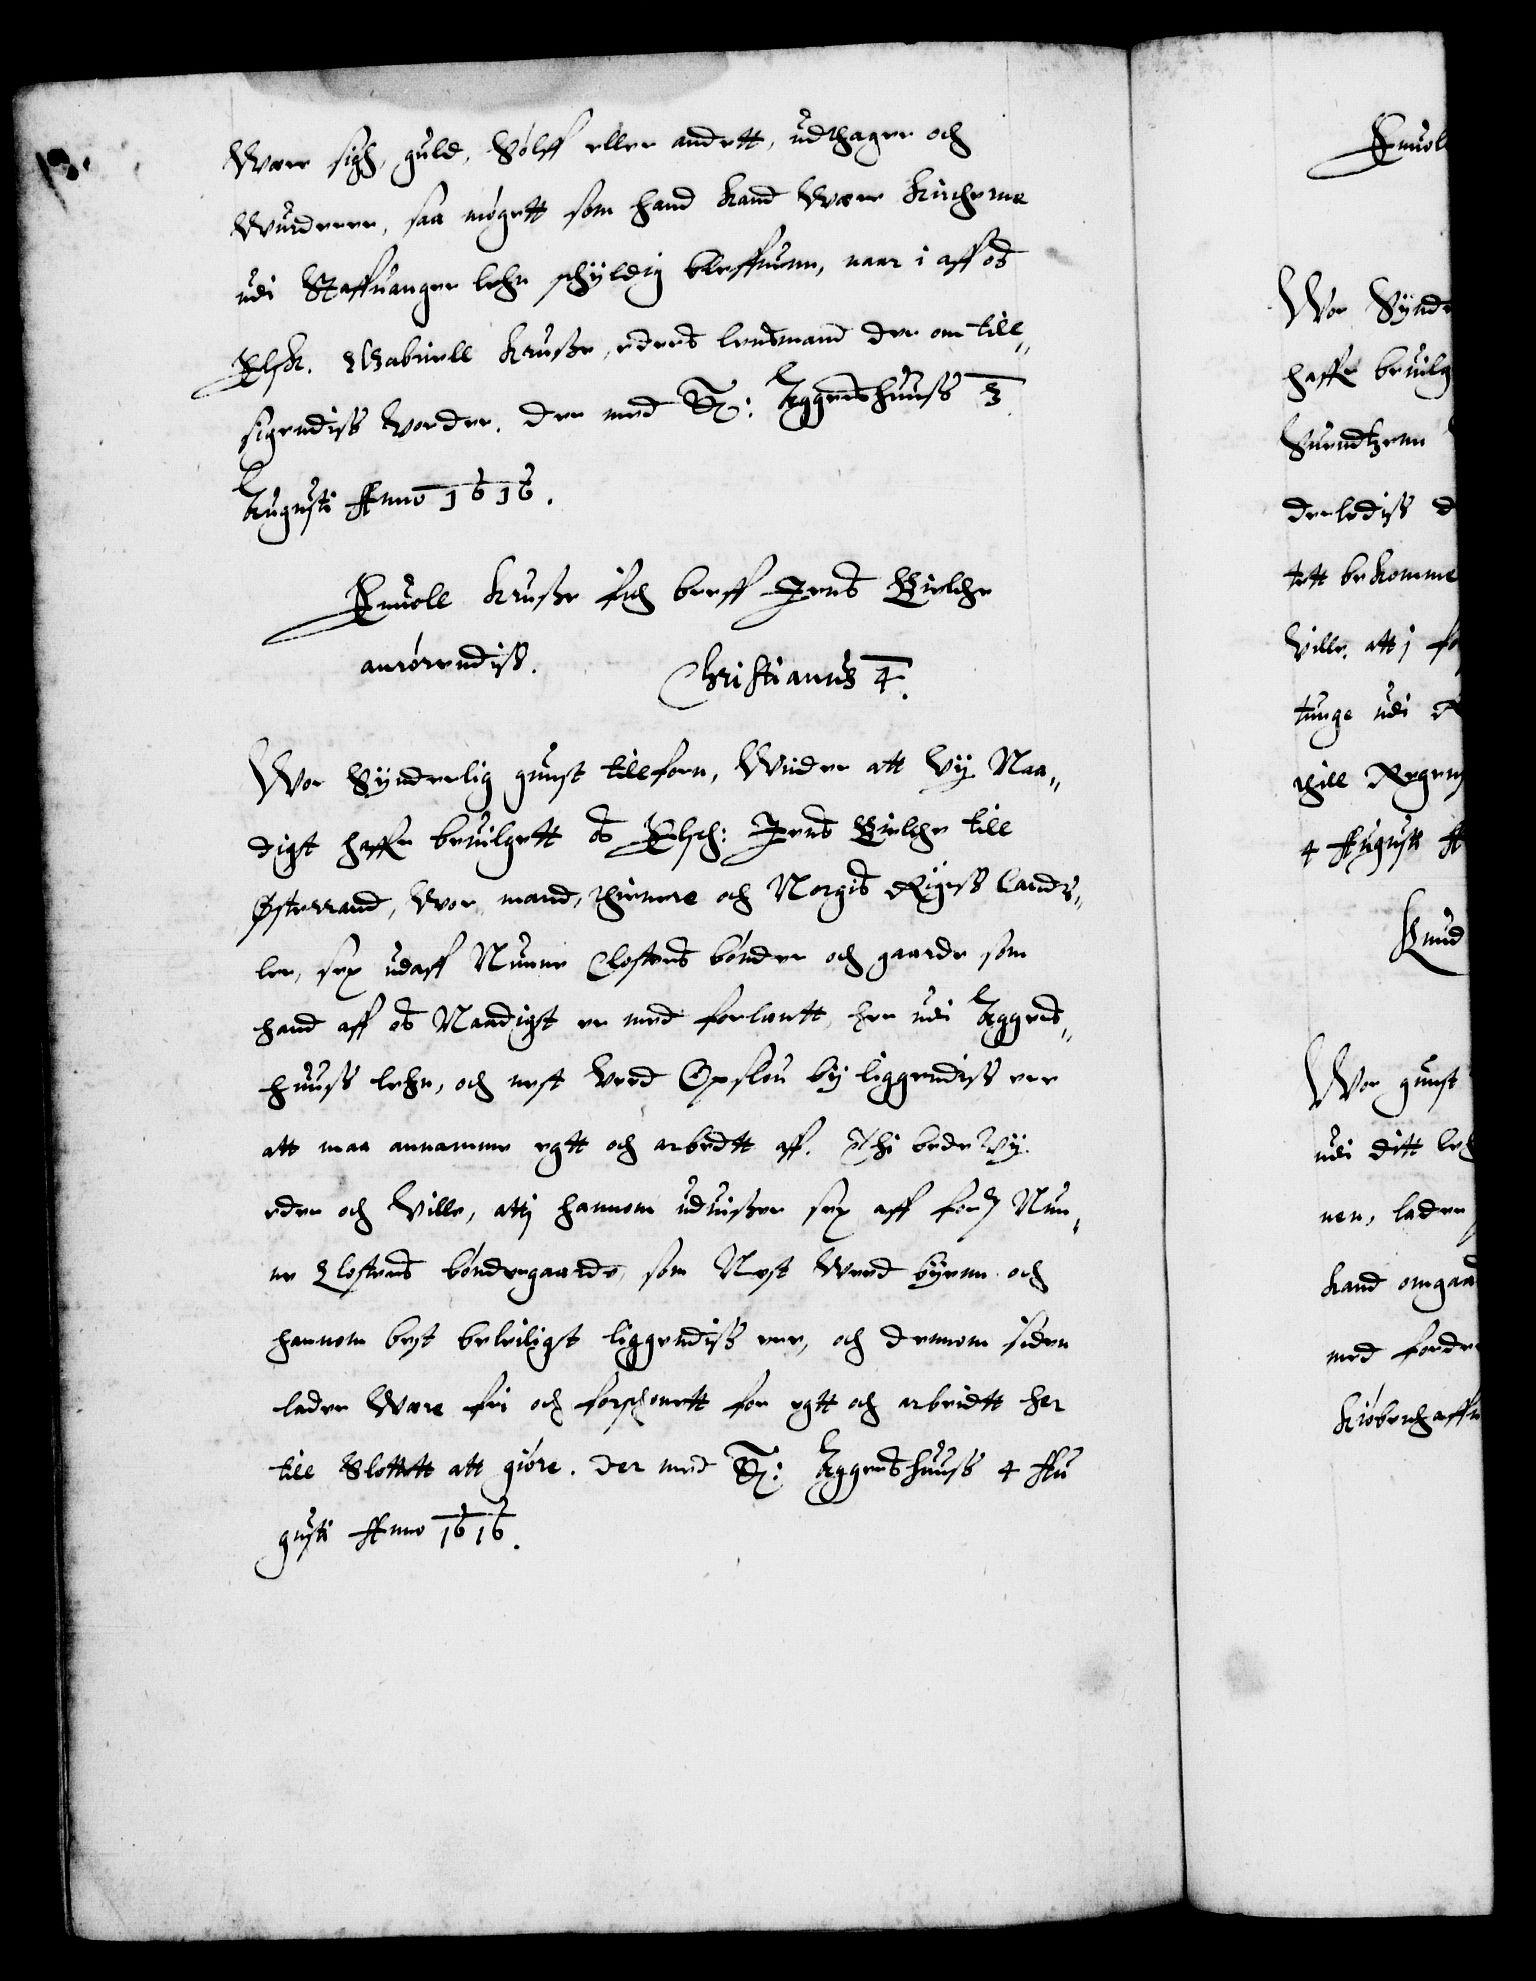 Were sigh, guld, Sølff eller andett, udthager och
Wurderer, saa møgett som hand kand Were kircherne
udi Staffuanger lehn schyldig bleffuenn, naar i aff os
Elsk. Gabriell Krusse, eders lensmand der om till„
sigendiss vorder. Der med Aggershuuss 3
Augusti Anno 1616.
Enuoll Krusse fich breff Jens Bielche
anrørendiss.
Christianus 4.
Wor Synderlig gunst tilforn, Wider att Vy Naa„
digst haffr beuilgett os Elsch: Jens Bielche till
Østerraad, Wor mand, thienere och Norgis Rigess Cands„
ler, sex udaff Nunne Closters bønder och gaarde som
hand aff os Naadigst er med forlentt, her udi Aggers„
huuss lehn, och nest Ved Opslou by liggendiss eer
att maa annamme egtt och arbedtt aff. Thi bede Vy
eder och Ville, atti hannom uduisser sex aff for: Nun„
ne Closters bøndergaarde, som Nest Wed byenn och
hannom best beleiligst liggendiss ere, och dennom siden
lader Were fri och forschonett for egtt och arbeidtt her
till Slottett att giøre. Der med Aggershuuss 4 Au
gusti Anno 1616.
Enuol
Wor Synde
haffr beuilg
derlediss d
tett bekomme
Ville, att j fo
tunge udi
4 Augusti A
Knud
Wor gunst
udi ditt leh
nen, lader
kand omgaa
med forde
Kiøbenhaffn